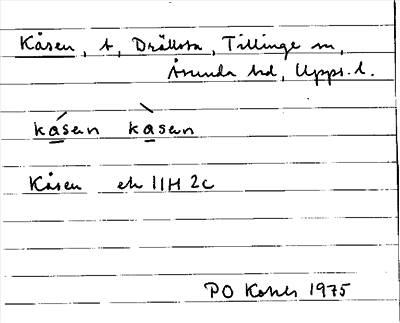 Kåsen, t, Drällsta, Tillinge sn,
Åsunda hd, Upps. l.
kåsen kàsen
Kåsen ek 11H 2c
PO 1975